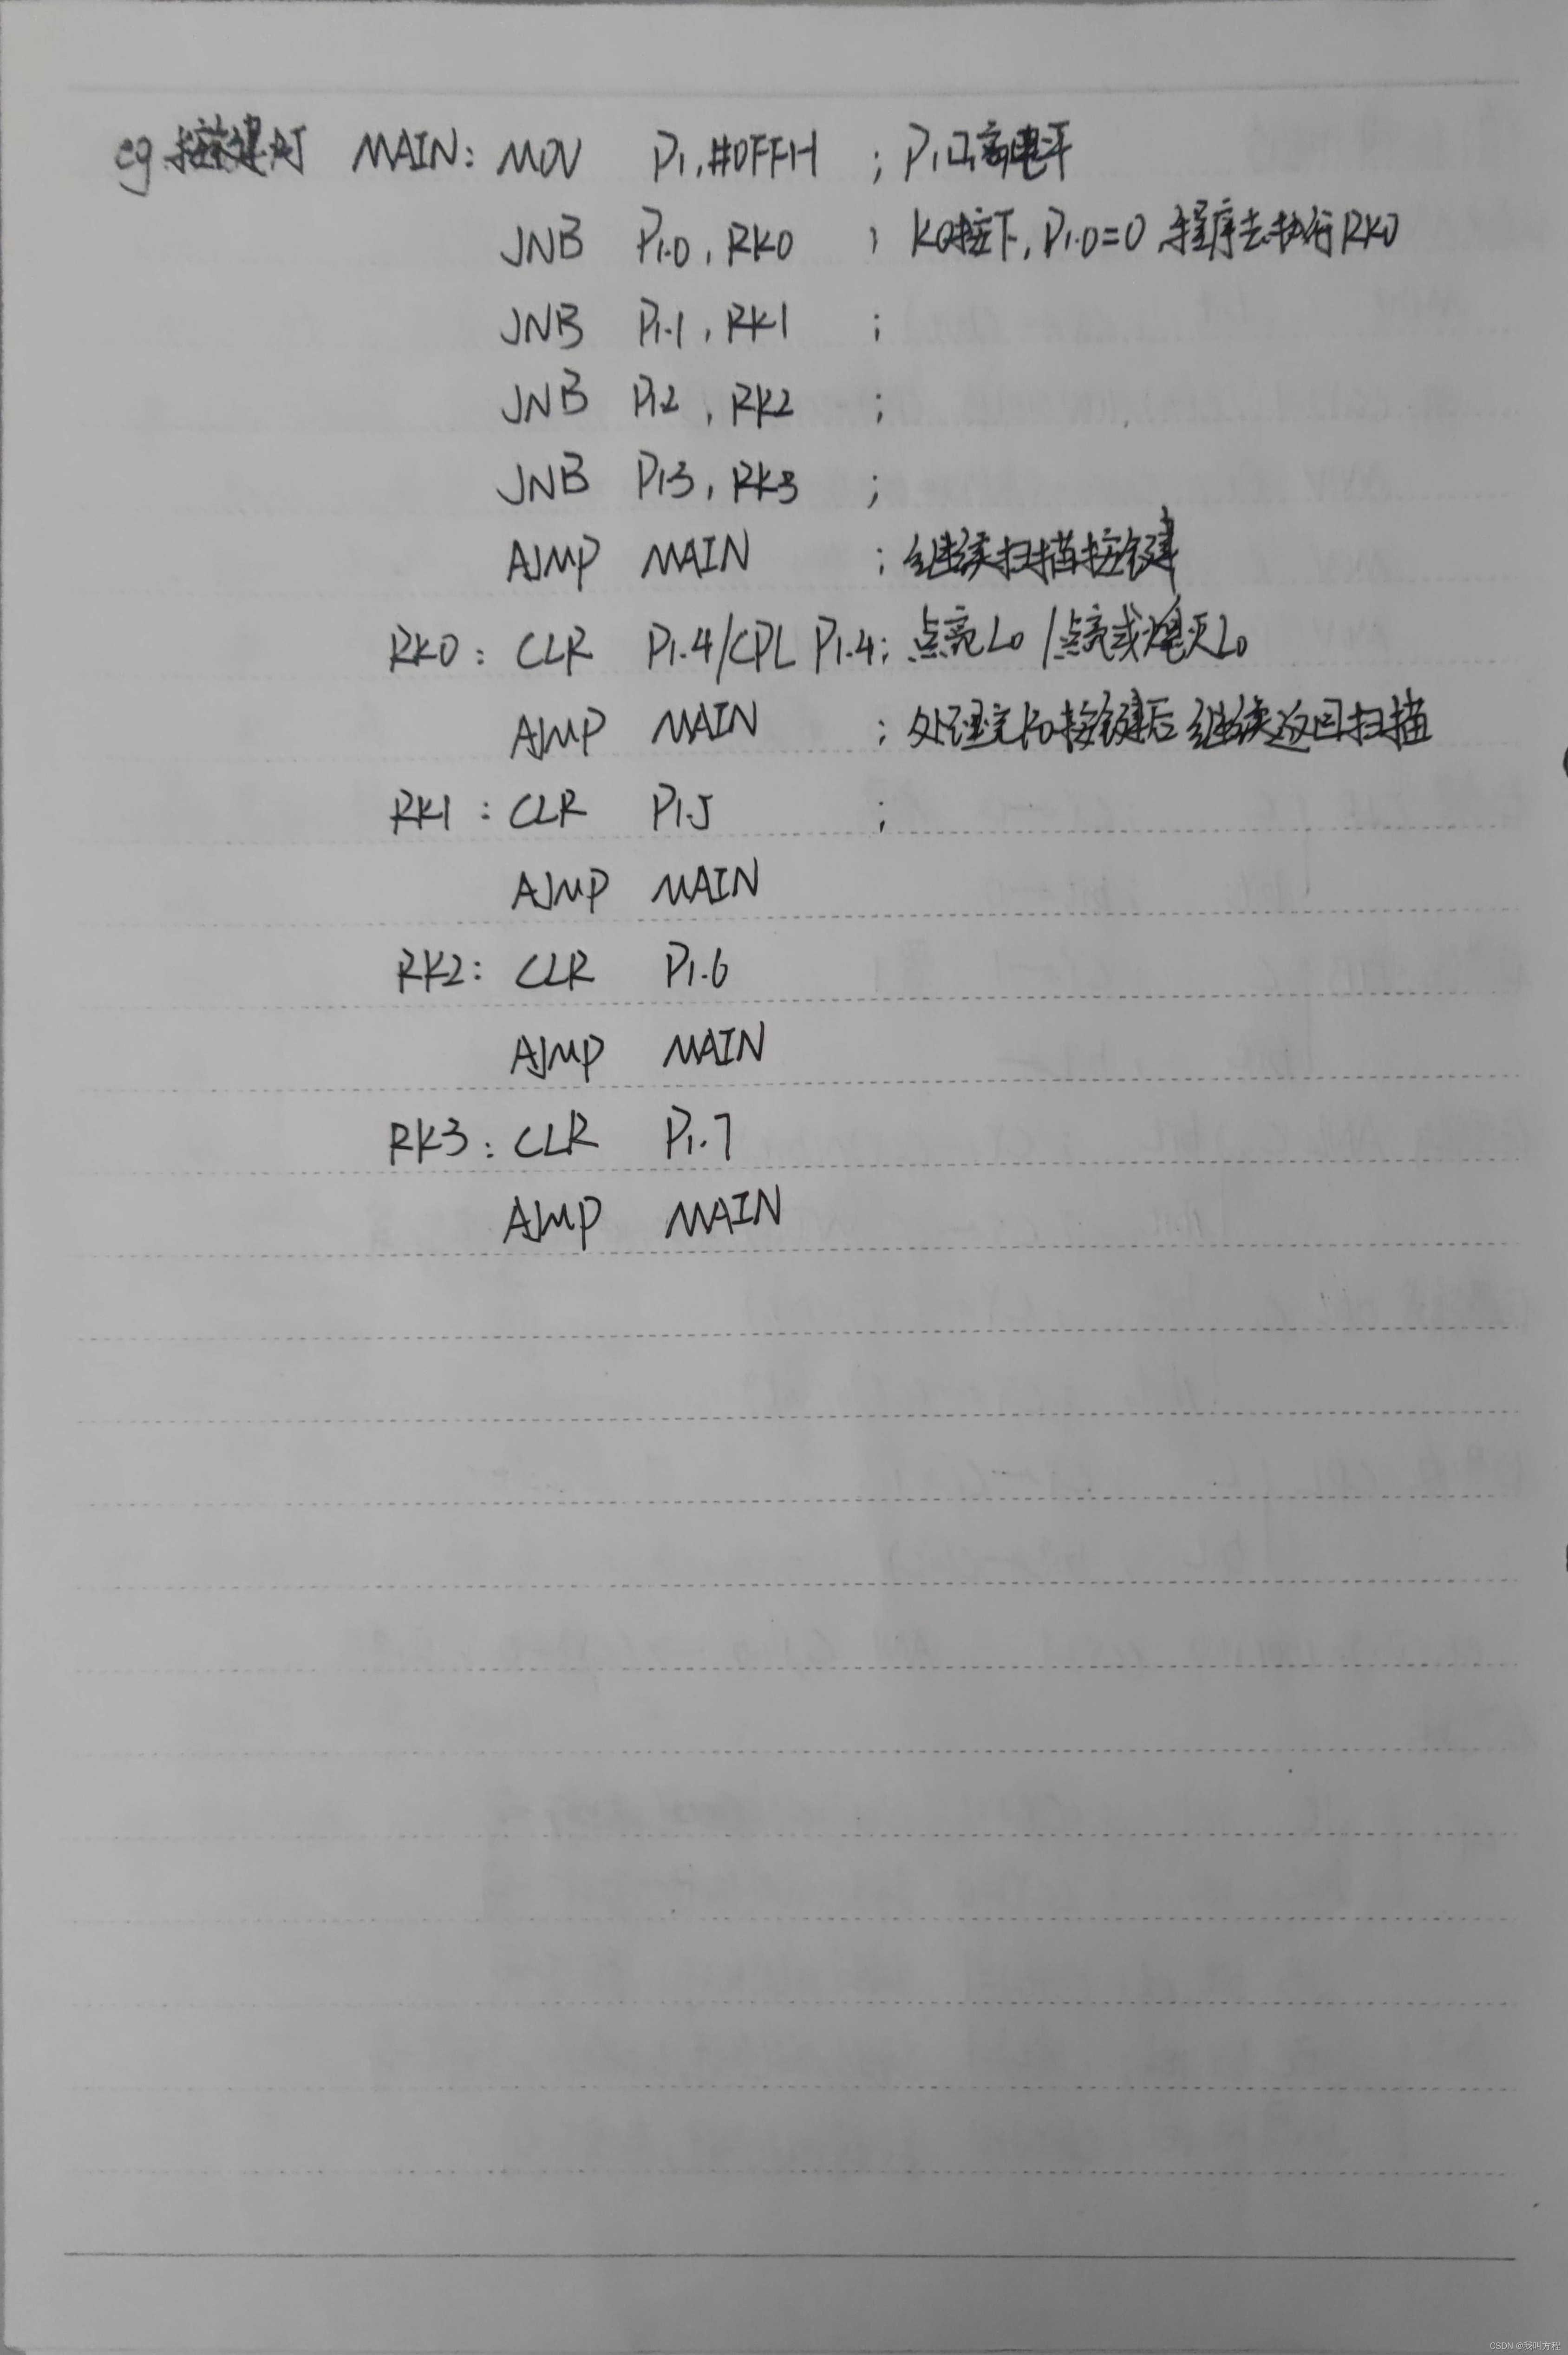 eg 按键灯 MAIN: MOV P1,#0FFH ; P1口高电平
JNB P1.0, RK0 ; K0按下,P1.0=0 程序去执行RK0
JNB P1.1, RK1 ;
JNB P1.2, RK2 ;
JNB P1.3, RK3 ;
AJMP MAIN ; 继续扫描按键
RK0: CLR P1.4/CPL P1.4; 点亮L0/点亮或熄灭L0
AJMP MAIN ; 处理完K0按键后继续返回扫描
RK1: CLR P1.5 ;
AJMP MAIN
RK2: CLR P1.6
AJMP MAIN
RK3: CLR P1.7
AJMP MAIN
CSDN @我叫方程